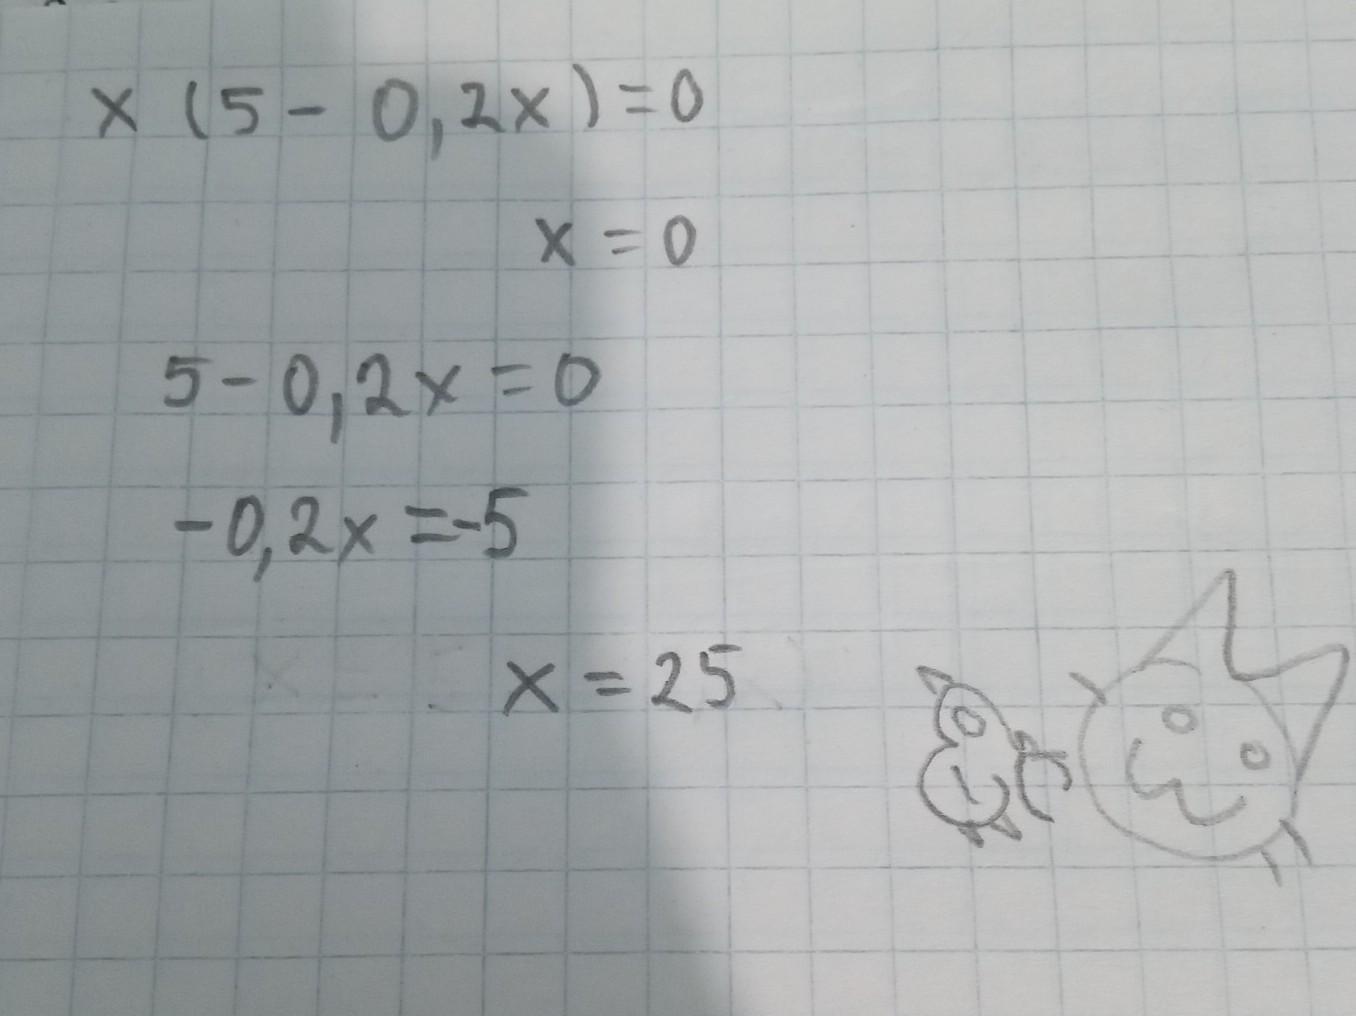 x (5 - 0,2x) = 0
x = 0
5 - 0,2x = 0
-0,2x = -5
x = 25